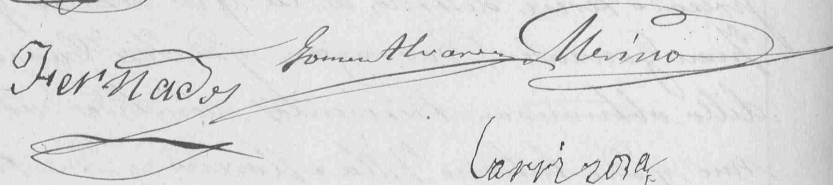 Fernados Gomez Alvarez Merino
Carrizosa